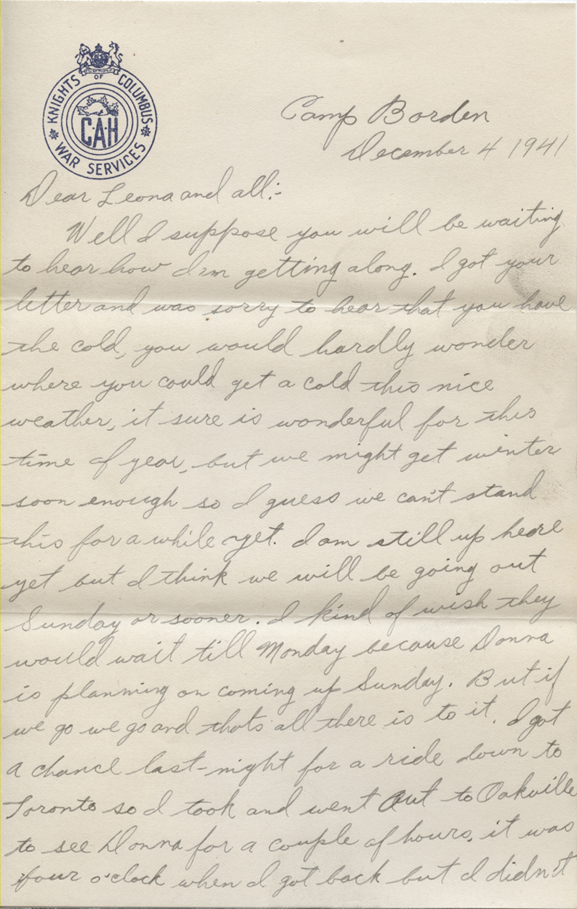 KNIGHTS OF COLUMBUS
CAH
WAR SERVICES
Camp Borden
December 4 1941
Dear Leona and all:-
Well I suppose you will be waiting
to hear how I'm getting along. I got your
letter and was sorry to hear that you have
the cold, you would hardly wonder
where you could get a cold this nice
weather, it sure is wonderful for this
time of year, but we might get winter
soon enough so I guess we can't stand
this for a while yet. I am still up here
yet but I think we will be going out
Sunday or sooner. I kind of wish they
would wait till Monday because Donna
is planning on coming up Sunday. But if
we go we go and thats all there is to it. I got
a chance last-night for a ride down to
Toronto so I took and went out to Oakville
to see Donna for a couple of hours, it was
four o'clock when I got back but I didn't